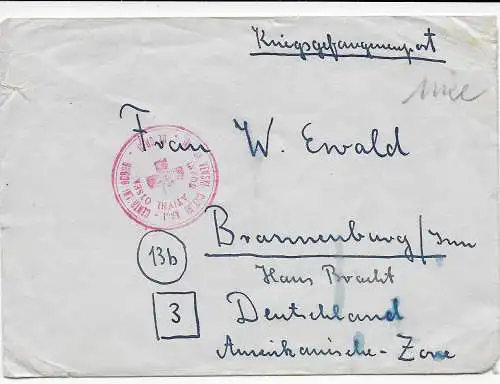 Kriegsgefangenenpost
Frau W. Ewald
13b
Brannenburg/Inn
Haus Bracht
3
Deutschland
Amerikanische-Zone